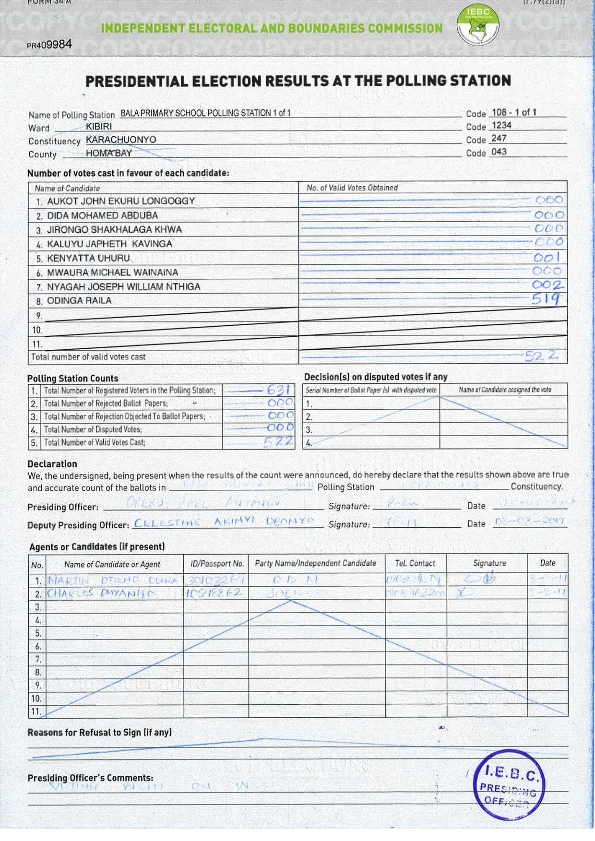 FORM 34 A
INDEPENDENT ELECTORAL AND BOUNDARIES COMMISSION
IEBC
PR409984
PRESIDENTIAL ELECTION RESULTS AT THE POLLING STATION
Name of Polling Station BALA PRIMARY SCHOOL POLLING STATION 1 of 1 Code 108 - 1 of 1
Ward KIBIRI Code 1234
Constituency KARACHUONYO Code 247
County HOMA BAY Code 043
Number of votes cast in favour of each candidate:
Name of Candidate No. of Valid Votes Obtained
1. AUKOT JOHN EKURU LONGOGGY 000
2. DIDA MOHAMED ABDUBA 000
3. JIRONGO SHAKHALAGA KHWA 000
4. KALUYU JAPHETH KAVINGA 000
5. KENYATTA UHURU 001
6. MWAURA MICHAEL WAINAINA 000
7. NYAGAH JOSEPH WILLIAM NTHIGA 002
8. ODINGA RAILA 519
9.
10.
11.
Total number of valid votes cast 522
Polling Station Counts
1. Total Number of Registered Voters in the Polling Station; 631
2. Total Number of Rejected Ballot Papers; 000
3. Total Number of Rejection Objected To Ballot Papers; 000
4. Total Number of Disputed Votes; 000
5. Total Number of Valid Votes Cast; 522
Decision(s) on disputed votes if any
Serial Number of Ballot Paper (s) with disputed vote Name of Candidate assigned the vote
1.
2.
3.
4.
Declaration
We, the undersigned, being present when the results of the count were announced, do hereby declare that the results shown above are true
and accurate count of the ballots in Polling Station Constituency.
Presiding Officer: Signature: Date
Deputy Presiding Officer: CELESTINE AKINYI Signature: Date 08-08-2017
Agents or Candidates (if present)
No. Name of Candidate or Agent ID/Passport No. Party Name/Independent Candidate Tel. Contact Signature Date
1. MARTIN OTIENO ODM
2. CHARLES
3.
4.
5.
6.
7.
8.
9.
10.
11.
Reasons for Refusal to Sign (if any)
Presiding Officer's Comments:
I.E.B.C.
PRESIDING
OFFICER